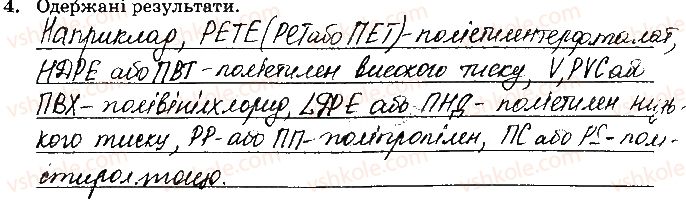 4. Одержані результати.
Наприклад, PETE (PET або ПЕТ) – поліетилентерфталат,
HDPE або ПВТ – поліетилен високого тиску, V, PVC або
ПВХ – полівінілхлорид, LDPE або ПНД – поліетилен низь-
кого тиску, PP – або ПП – поліпропілен, ПС або PS – полі-
стирол тощо.